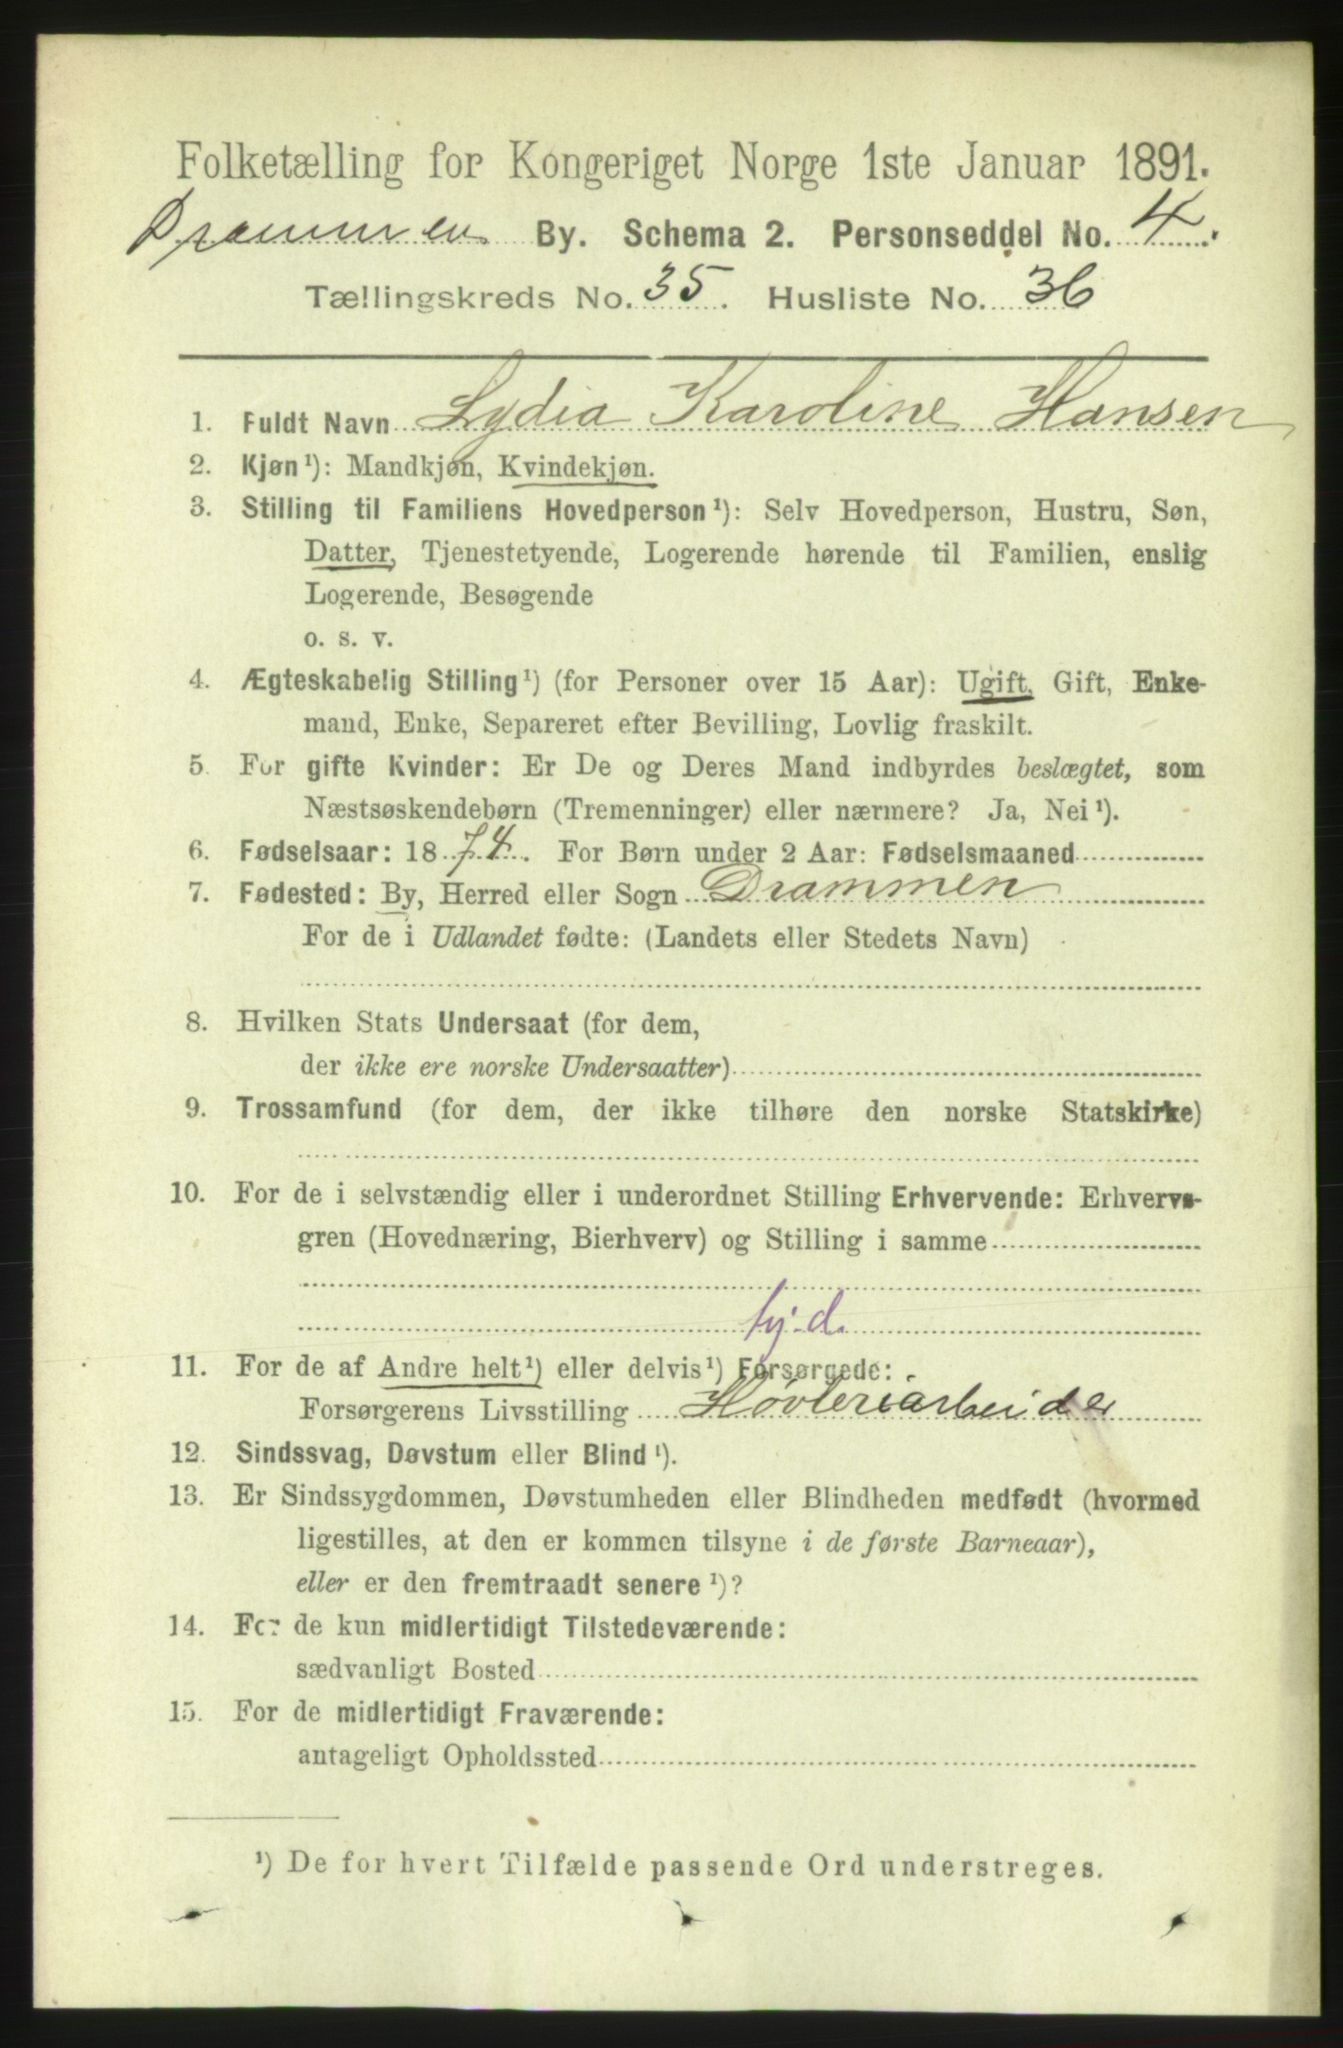 Folketælling for Kongeriget Norge 1ste Januar 1891.
Drammen By. Schema 2. Personseddel No. 4.
Tællingskreds No. 35. Husliste No. 36
1. Fuldt Navn Lydia Karoline Hansen
2. Kjøn¹): Mandkjøn, Kvindekjøn.
3. Stilling til Familiens Hovedperson¹): Selv Hovedperson, Hustru, Søn,
Datter, Tjenestetyende, Logerende hørende til Familien, enslig
Logerende, Besøgende
o. s. v.
4. Ægteskabelig Stilling¹) (for Personer over 15 Aar): Ugift, Gift, Enke-
mand, Enke, Separeret efter Bevilling, Lovlig fraskilt.
5. For gifte Kvinder: Er De og Deres Mand indbyrdes beslægtet, som
Næstsøskendebørn (Tremenninger) eller nærmere? Ja, Nei¹).
6. Fødselsaar: 1874. For Børn under 2 Aar: Fødselsmaaned
7. Fødested: By, Herred eller Sogn Drammen
For de i Udlandet fødte: (Landets eller Stedets Navn)
8. Hvilken Stats Undersaat (for dem,
der ikke ere norske Undersaatter)
9. Trossamfund (for dem, der ikke tilhøre den norske Statskirke)
10. For de i selvstændig eller i underordnet Stilling Erhvervende: Erhvervs-
gren (Hovednæring, Bierhverv) og Stilling i samme
11. For de af Andre helt¹) eller delvis¹) Forsørgede:
Forsørgerens Livsstilling Høvleriarbeider
12. Sindssvag, Døvstum eller Blind¹).
13. Er Sindssygdommen, Døvstumheden eller Blindheden medfødt (hvormed
ligestilles, at den er kommen tilsyne i de første Barneaar),
eller er den fremtraadt senere¹)?
14. For de kun midlertidigt Tilstedeværende:
sædvanligt Bosted
15. For de midlertidigt Fraværende:
antageligt Opholdssted
¹) De for hvert Tilfælde passende Ord understreges.